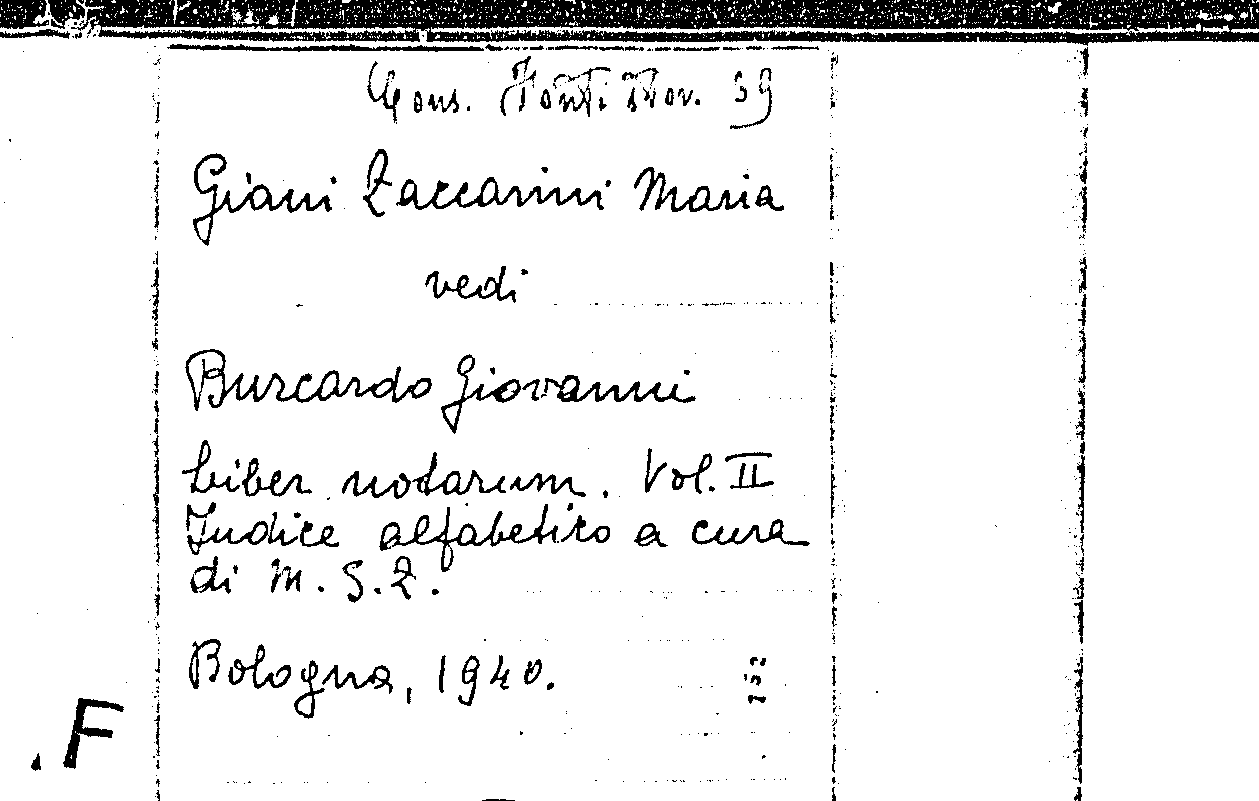 Cons. Fonti Stor. 39
Giani Zaccarini Maria
vedi
Burcardo Giovanni
Liber notarum. Vol. II
Indice alfabetico a cura
di M. G. Z.
Bologna, 1940.
732
.F